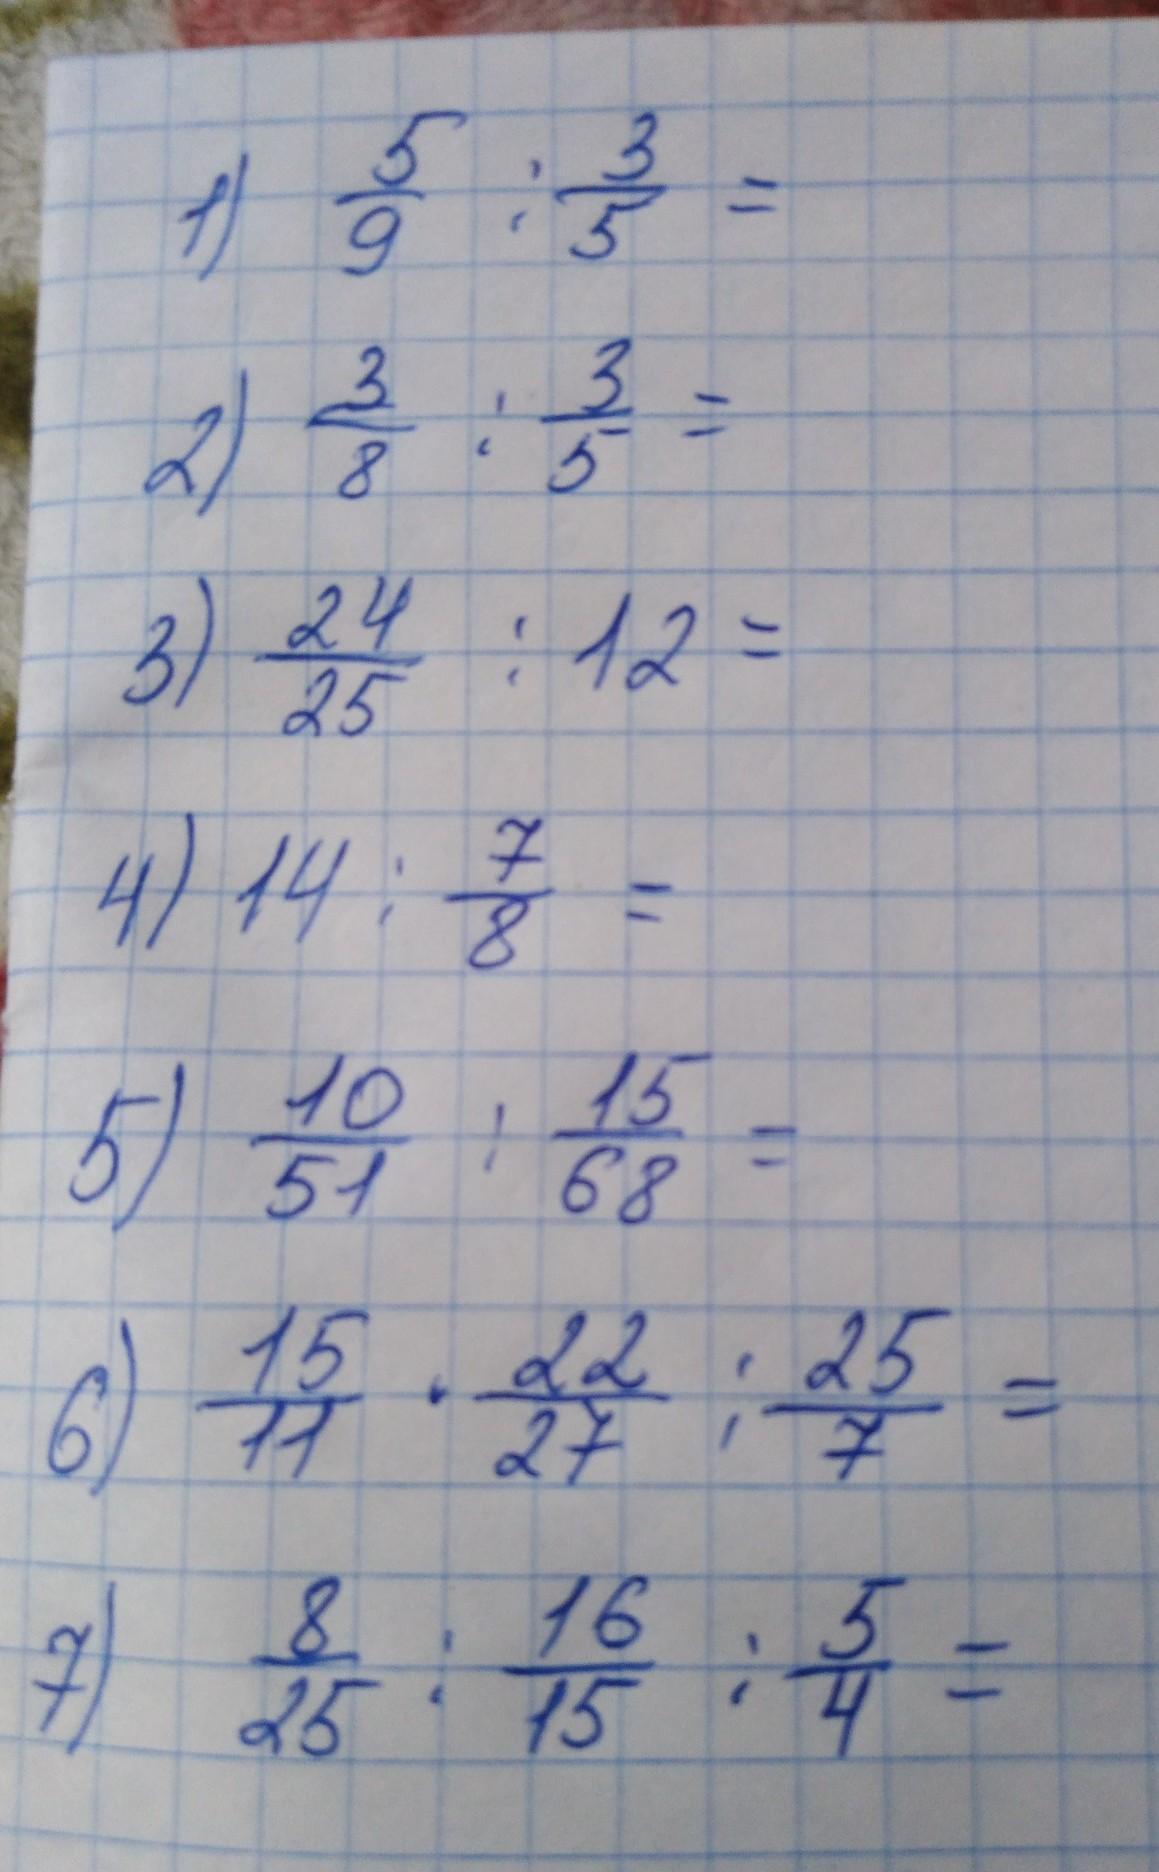 1) 5/9 : 3/5 =
2) 3/8 : 3/5 =
3) 24/25 : 12 =
4) 14 : 7/8 =
5) 10/51 : 15/68 =
6) 15/11 · 22/27 : 25/7 =
7) 8/25 : 16/15 : 5/4 =